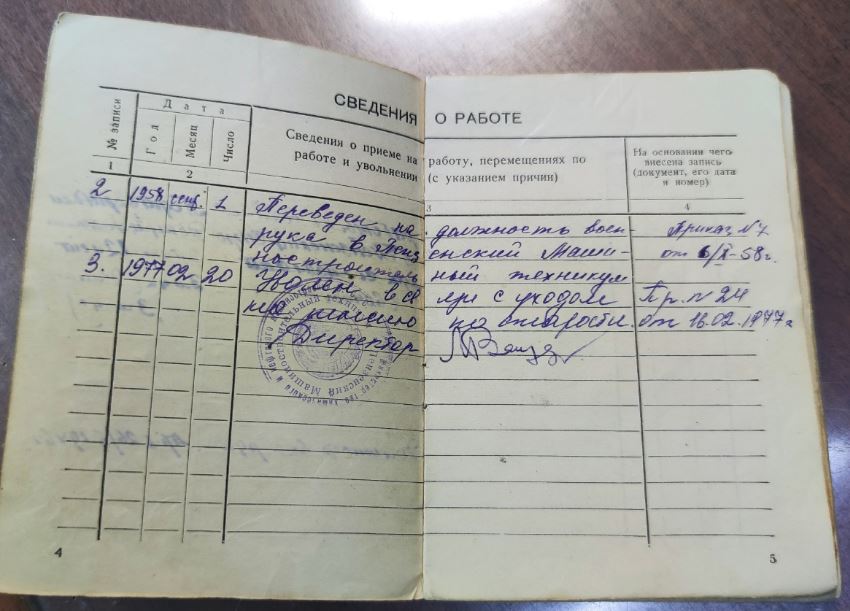 СВЕДЕНИЯ О РАБОТЕ
№ записи
Дата
Год
Месяц
Число
Сведения о приеме на работу, перемещениях по
работе и увольнении (с указанием причин)
На основании чего
внесена запись
(документ, его дата
и номер)
1 2 3 4
2 1958 сент. 1 Переведен на должность воен- Приказ №7
рука в Пензенский Маши- от 6/X-58г.
ностроительный техникум
3. 1977 02 20 Уволен в связи с уходом Пр. № 24
по старости. от 16.02.1977г
Директор
4
5